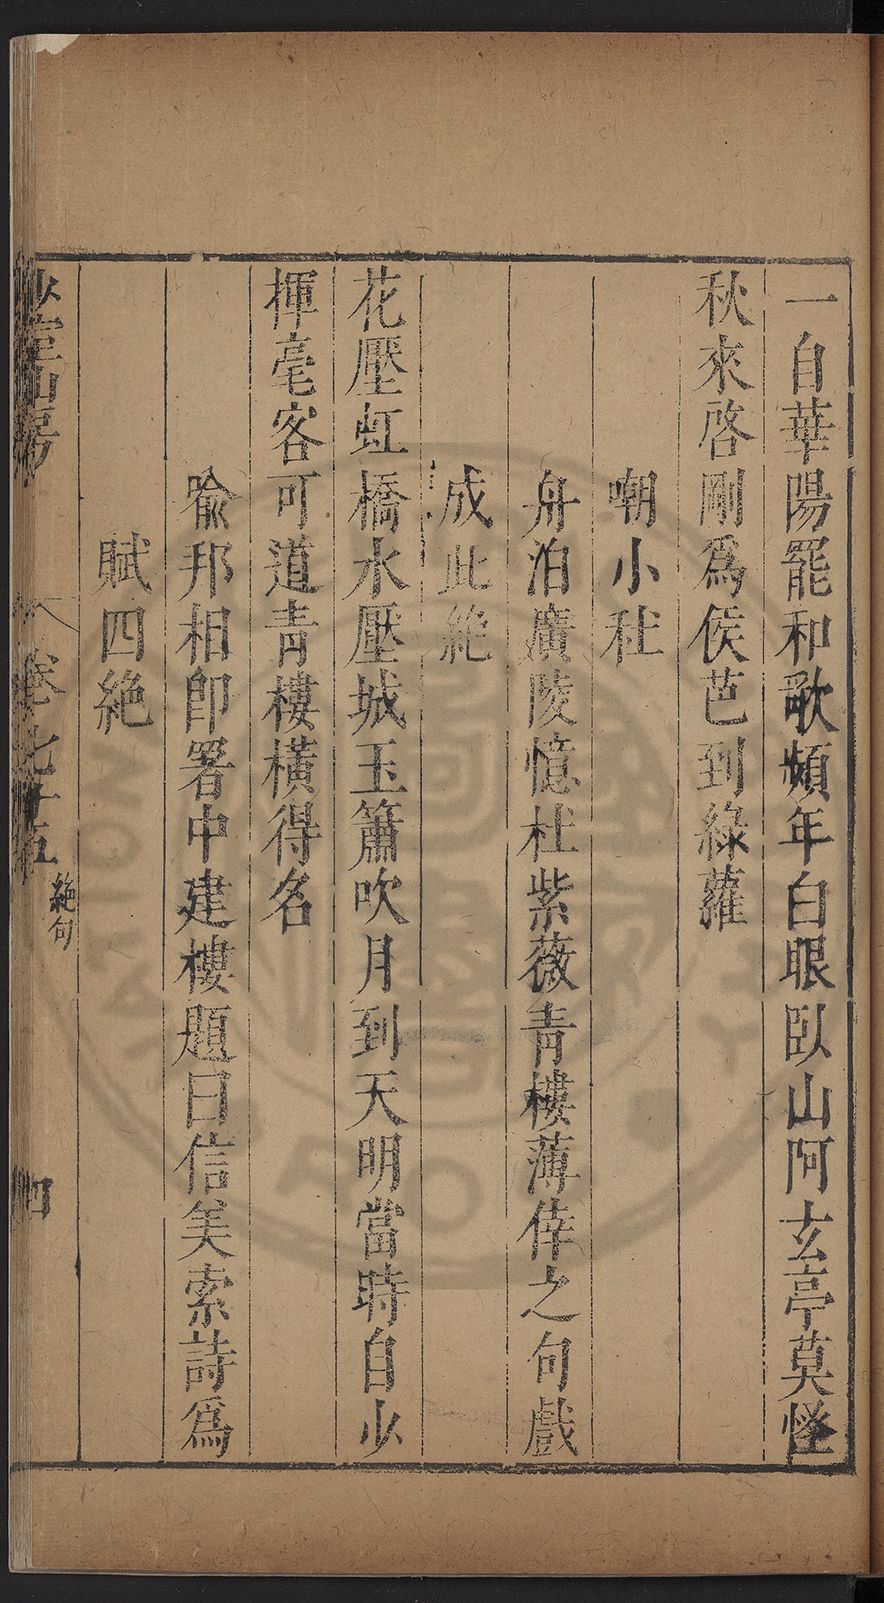 一自華陽罷和歌頻年白眼臥山阿玄亭莫怪
秋來啓剛爲侯芭到綠蘿
嘲小杜
舟泊廣陵憶杜紫薇青樓薄倖之句戲
成此絶
花壓虹橋水壓城玉簫吹月到天明當時自少
揮毫客可道青樓橫得名
喻邦相卽署中建樓題曰信美索詩爲
賦四絶
房
卷七十五
絶句
四